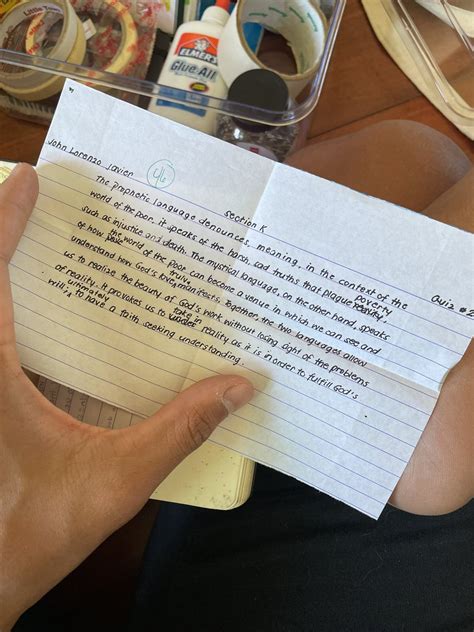 ELMER'S
Glue-All
John Lorenzo Javier Section K Quiz #2
The prophetic language denounces, meaning, in the context of the
world of the poor, it speaks of the harsh, sad truths that plague poverty,
such as injustice and death. The mystical language, on the other hand, speaks
of how the world of the poor can become a venue in which we can see and
understand how God's love truly manifests. Together, the two languages allow
us to realize the beauty of God's work without losing sight of the problems
of reality. It provokes us to take in reality as it is in order to fulfill God's
will: ultimately to have a faith seeking understanding.